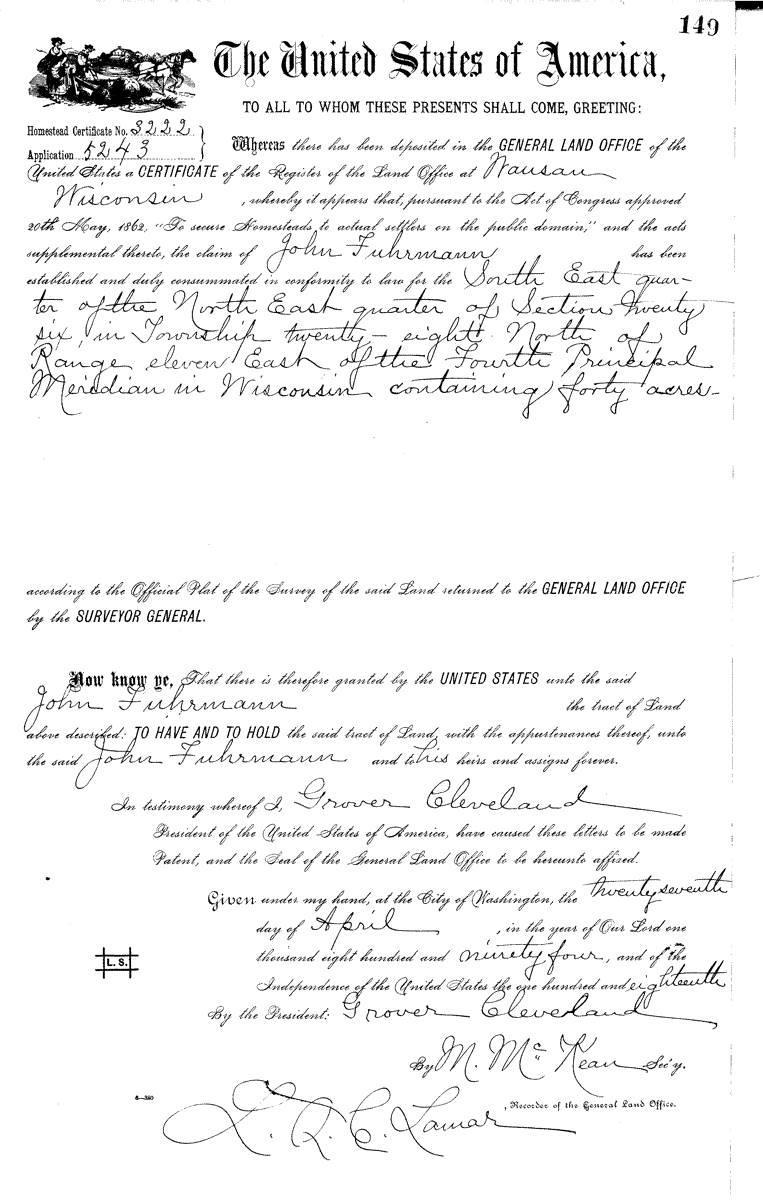 149
The United States of America,
TO ALL TO WHOM THESE PRESENTS SHALL COME, GREETING:
Homestead Certificate No. 3222
Application 5243
Whereas there has been deposited in the GENERAL LAND OFFICE of the
United States a CERTIFICATE of the Register of the Land Office at Wausau
Wisconsin, whereby it appears that, pursuant to the Act of Congress approved
20th May, 1862, "To secure Homesteads to actual settlers on the public domain," and the acts
supplemental thereto, the claim of John Fuhrmann has been
established and duly consummated in conformity to law for the South East quar-
ter of the North East quarter of Section twenty
six, in Township twenty-eight North of
Range eleven East of the Fourth Principal
Meredian in Wisconsin containing forty acres-
according to the Official Plat of the Survey of the said Land returned to the GENERAL LAND OFFICE
by the SURVEYOR GENERAL.
Now know ye, That there is therefore granted by the UNITED STATES unto the said
John Fuhrmann the tract of Land
above described: TO HAVE AND TO HOLD the said tract of Land, with the appurtenances thereof, unto
the said John Fuhrmann and to his heirs and assigns forever.
In testimony whereof I, Grover Cleveland
President of the United States of America, have caused these letters to be made
Patent, and the Seal of the General Land Office to be hereunto affixed.
Given under my hand, at the City of Washington, the twenty seventh
day of April, in the year of Our Lord one
thousand eight hundred and ninety four, and of the
Independence of the United States the one hundred and eighteenth
L. S.
By the President: Grover Cleveland
By M. McKean Sec'y.
6-380
, Recorder of the General Land Office.
L. Q. C. Lamar